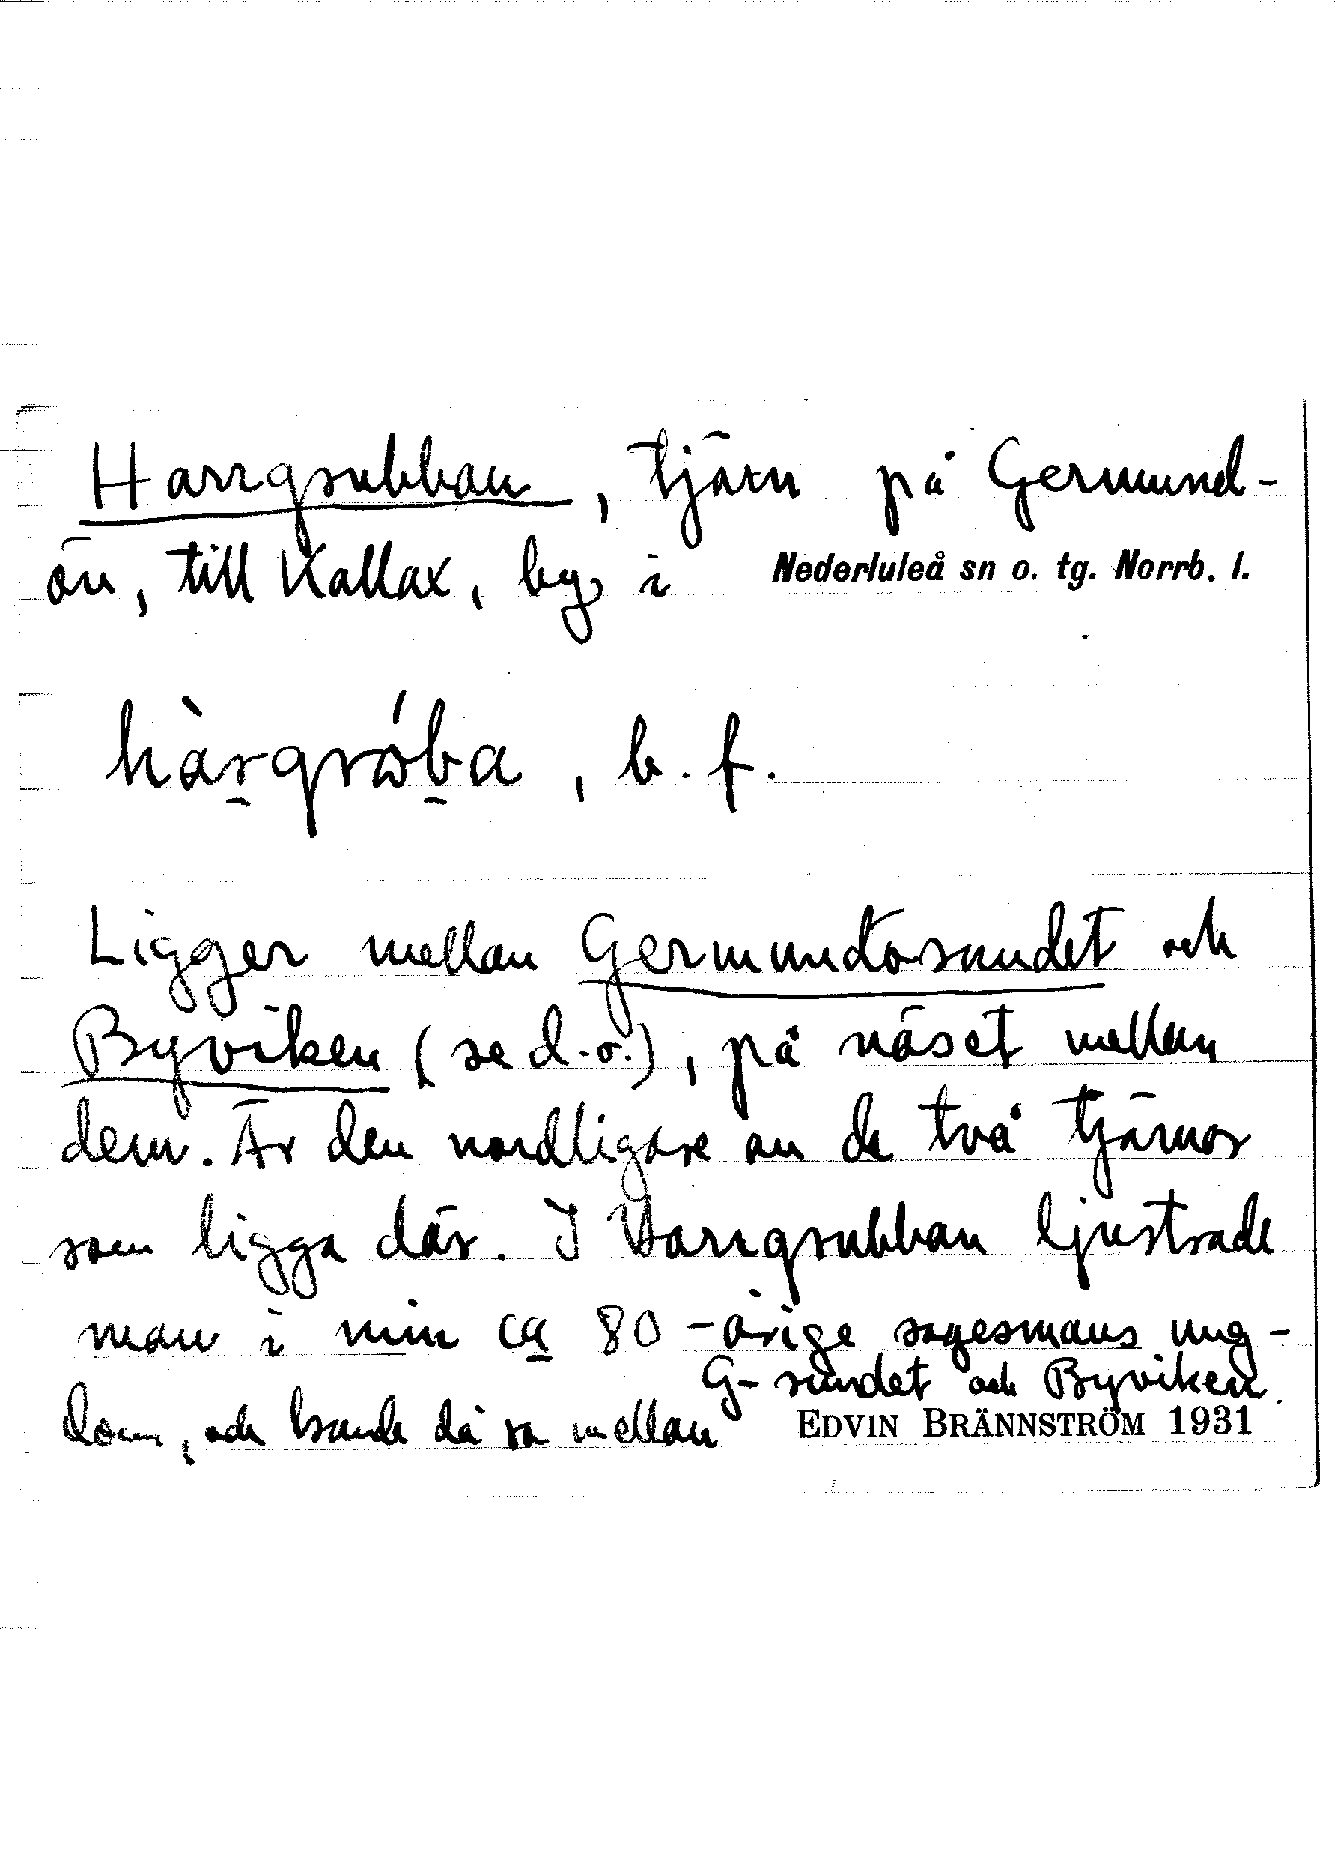 Harrgrubban, tjärn på Germund-
ön, till Kallax, by i Nederluleå sn o. tg. Norrb. l.
b. f.
Ligger mellan Germundösundet och
Byviken (se d.o.), på näset mellan
dem. Är den nordligare av de två tjärnar
som ligga där. I Harrgrubban ljustrade
man i min ca 80-årige sagesmans ung-
dom, och kunde då ro mellan G-sundet och Byviken.
EDVIN BRÄNNSTRÖM 1931